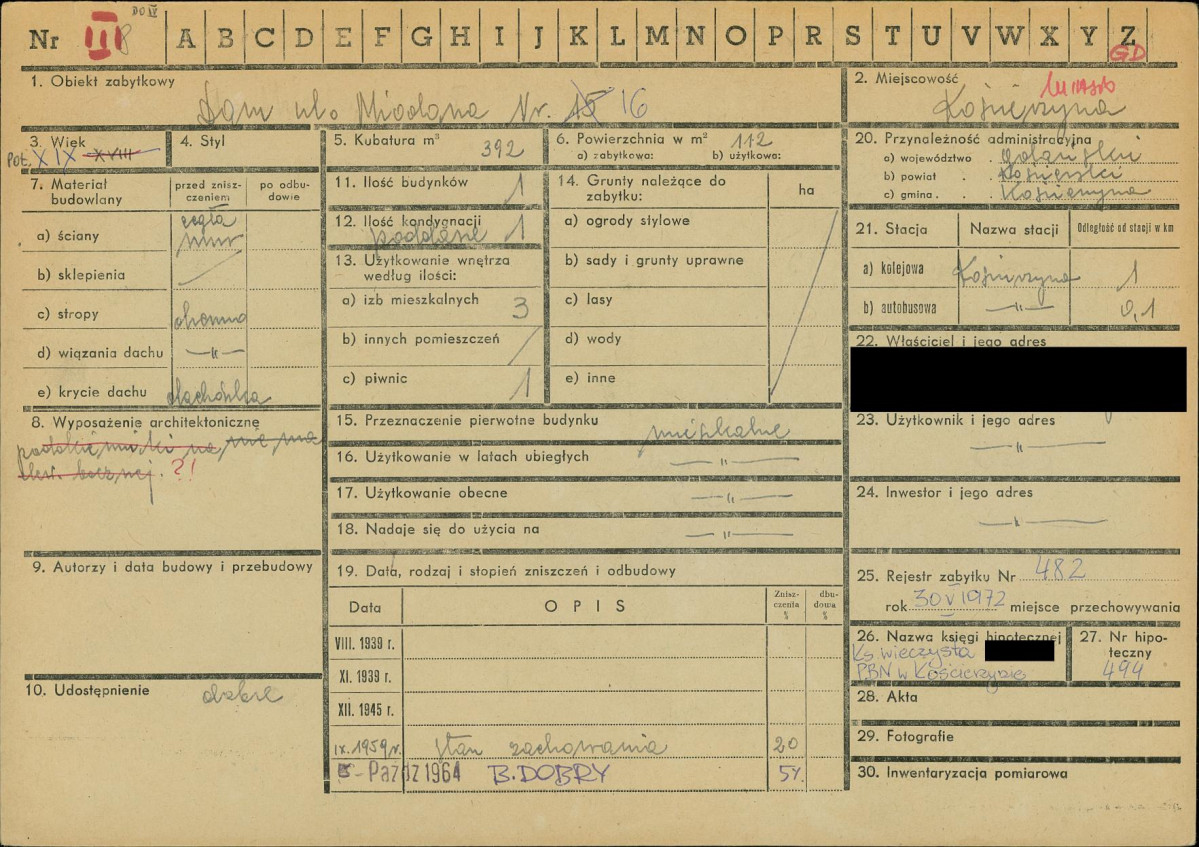 DO IV
Nr III 8 A B C D E F G H I J K L M N O P R S T U V W X Y Z
GD
1. Obiekt zabytkowy
Dom ul. Miodowa Nr. 15 16
2. Miejscowość
miasto
Kościerzyna
3. Wiek
Poł. XIX XVIII
4. Styl
5. Kubatura m³ 392
6. Powierzchnia w m² 112
a) zabytkowa: b) użytkowa:
20. Przynależność administracyjna
a) województwo . gdański
b) powiat . . kościerski
c) gmina . . Kościerzyna
7. Materiał budowlany
przed zniszczeniem
po odbudowie
a) ściany
cegła
mur
b) sklepienia
c) stropy
d) wiązania dachu —„—
e) krycie dachu dachówka
8. Wyposażenie architektoniczne
?!
9. Autorzy i data budowy i przebudowy
10. Udostępnienie dobre
11. Ilość budynków 1
12. Ilość kondygnacji 1
poddasze
13. Użytkowanie wnętrza według ilości:
a) izb mieszkalnych 3
b) innych pomieszczeń
c) piwnic 1
14. Grunty należące do zabytku:
ha
a) ogrody stylowe
b) sady i grunty uprawne
c) lasy
d) wody
e) inne
15. Przeznaczenie pierwotne budynku
mieszkalne
16. Użytkowanie w latach ubiegłych —„—
17. Użytkowanie obecne —„—
18. Nadaje się do użycia na —„—
19. Data, rodzaj i stopień zniszczeń i odbudowy
Data
OPIS
Zniszczenia %
dbudowa %
VIII. 1939 r.
XI. 1939 r.
XII. 1945 r.
IX. 1959 r. stan zachowania 20
5 - Paźdz 1964 B. DOBRY 5%
21. Stacja
Nazwa stacji
Odległość od stacji w km
a) kolejowa Kościerzyna 1
b) autobusowa —„— 0,1
22. Właściciel i jego adres
23. Użytkownik i jego adres
—„—
24. Inwestor i jego adres
—„—
25. Rejestr zabytku Nr 482
rok 30 V 1972 miejsce przechowywania
26. Nazwa księgi hipotecznej
Ks. wieczysta
PBN w Kościerzynie
27. Nr hipoteczny
494
28. Akta
29. Fotografie
30. Inwentaryzacja pomiarowa